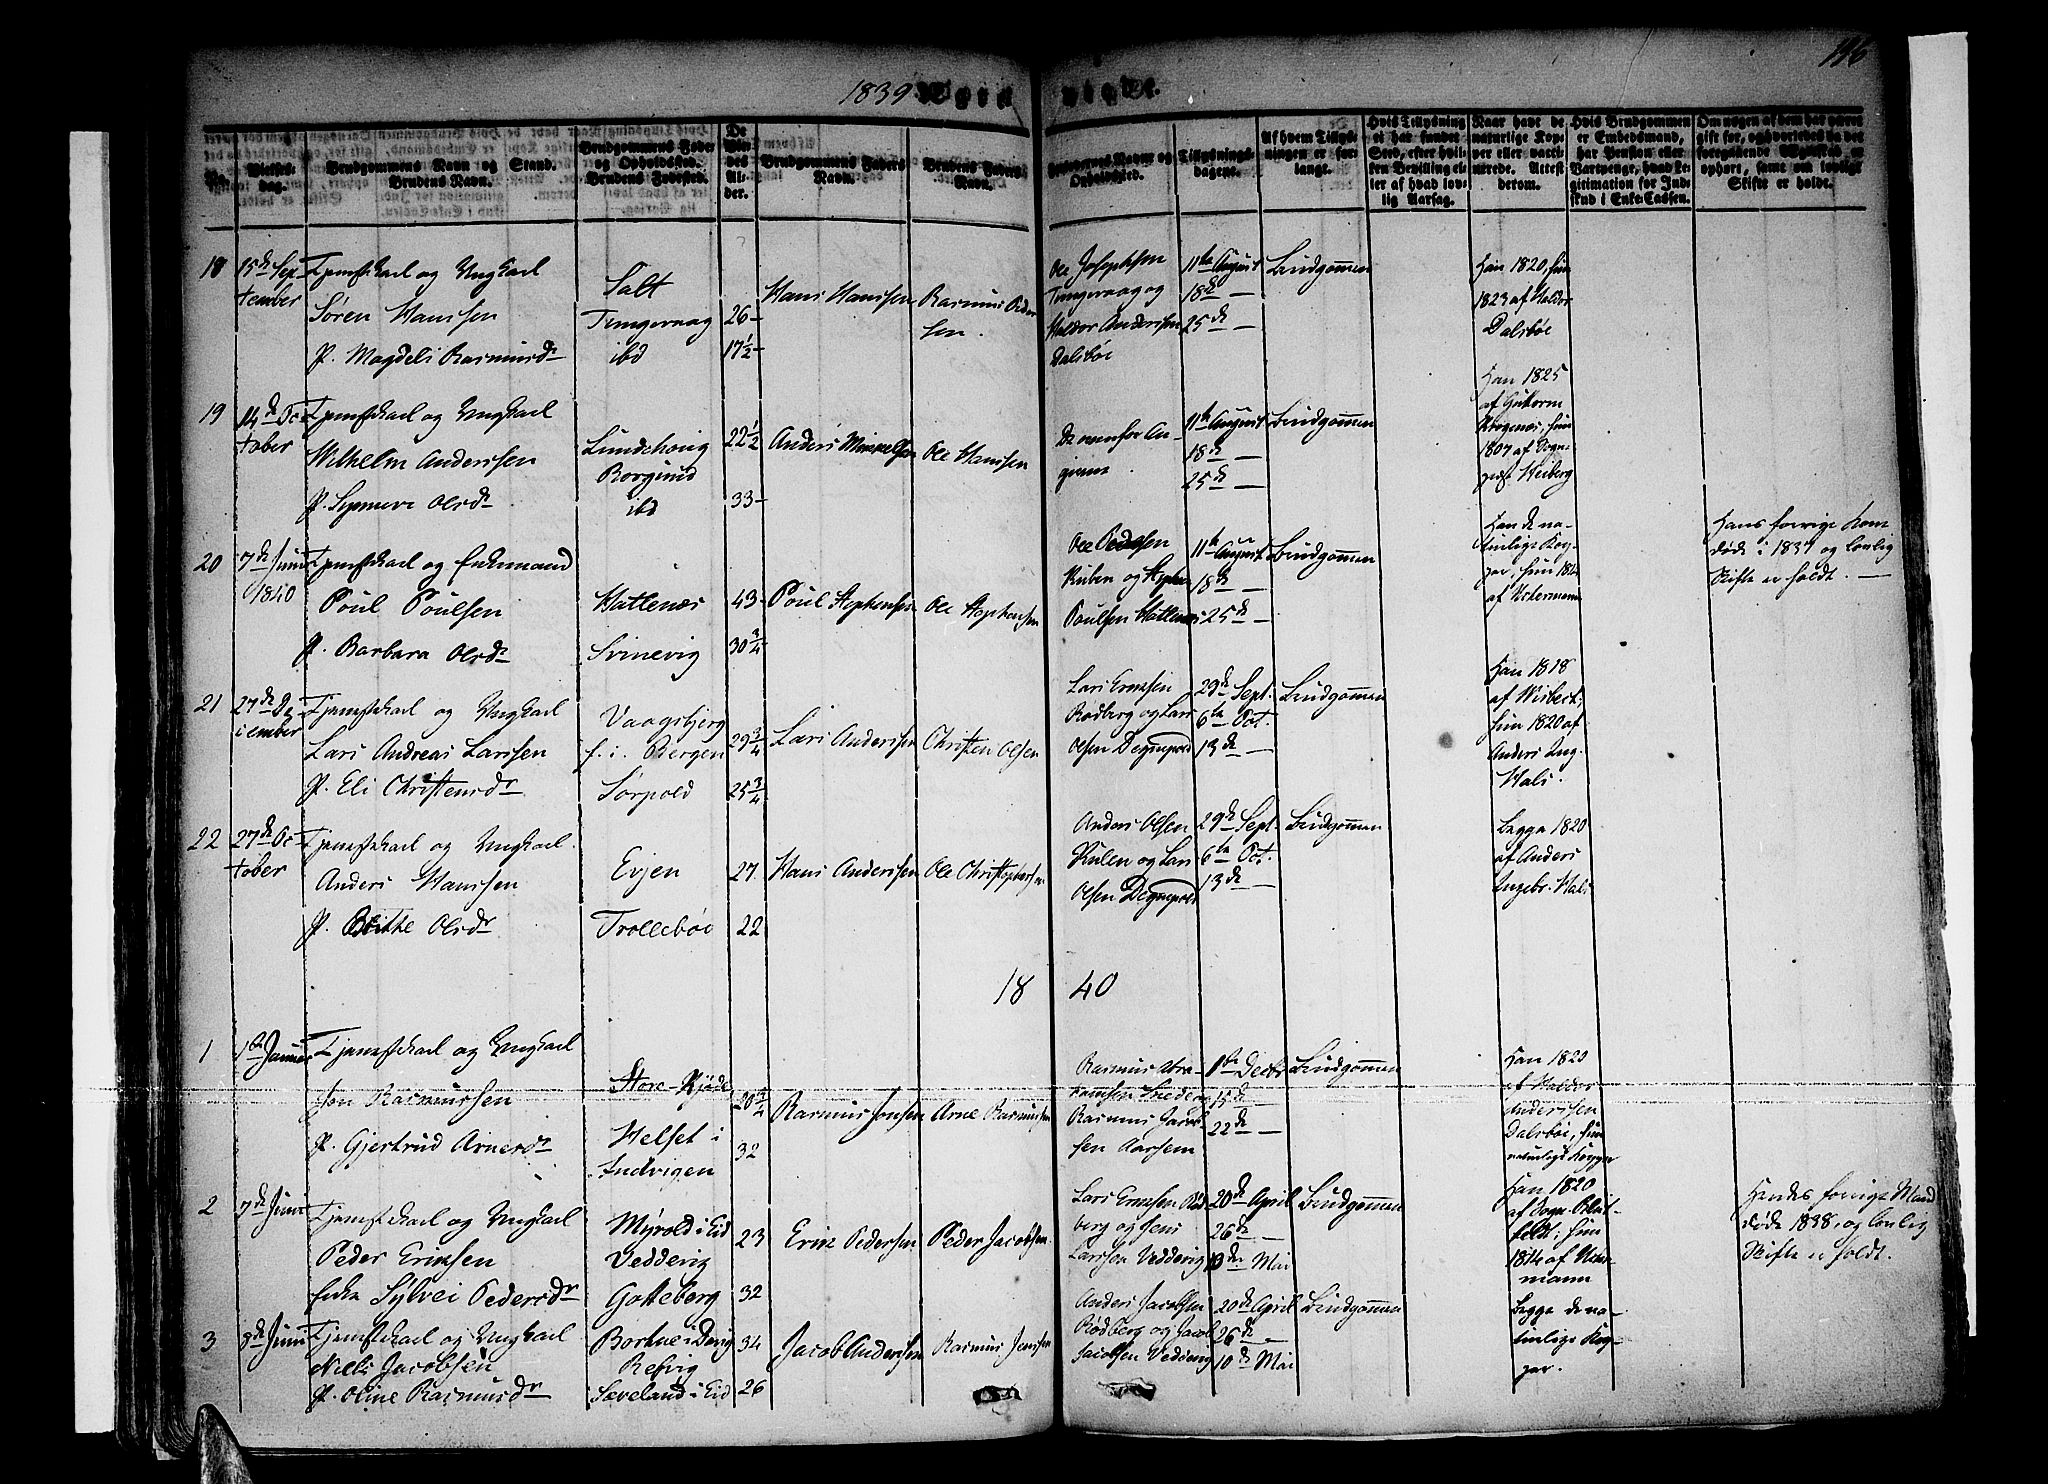 116
1839 Egte viede.
No.
Vielses-
dag.
Brudgommens Navn og Stand.
Brudens Navn.
Brudgommens Føde-
og Opholdssted.
Brudens Fødested.
De
Vie-
des
Al-
der.
Brudgommens Faders
Navn.
Brudens Faders
Navn.
Forlovernes Navne og
Opholdssted.
Tillysnings-
dagene.
Af hvem Tillys-
ningen er for-
langt.
Hvis Tillysning
ei har fundet
Sted, efter hvil-
ken Bevilling el-
ler af hvad lov-
lig Aarsag.
Naar have de
naturlige Kop-
per eller vacci-
nerede. Attest
derom.
Hvis Brudgommen
er Embedsmand,
har Pension eller
Vartpenge, hvad Le-
gitimation for Ind-
skud i Enke-Cassen.
Om nogen af dem har været
gift før, og hvorledes da det
foregaaende Ægteskab er
ophørt, samt om lovligt
Skifte er holdt.
18
15de Sep-
tember
Tjenstekarl og Ungkarl
Søren Hanssen
P. Magdeli Rasmusdr
Salt
Tungevaag
ibd
26
17½
Hans Hanssen
Rasmus Peder-
sen.
Ole Josephsen
Tungevaag og
Haldor Anderssen
Dalsbøe
11te August
18de
25de
Brudgommen
Han 1820, hun
1823 af Haldor
Dalsbøe
19
14de Oc-
tober
Tjenstekarl og Ungkarl
Wilhelm Anderssen
P. Synneve Olsdr
Borgund
ibd
22½
33
Anders Mikkelsen
Ole Hanssen
De ovenfor An-
givne
11te August
18de
25de
Brudgommen
Han 1825
af Guttorm
hun
1807 af Sogne-
præst
20
7de Juni
1840
Tjenstekarl og Enkemand
Poul Poulsen
P. Barbara Olsdr
Hattenæs
Svinevig
43
30¾
Poul Stephensen
Ole Stephensen
Ole Pedersen
og Stephen
Poulsen Hattenæs
11te August
18de
25de
Brudgommen
Han de na-
turlige Kop-
per, hun
af
Hans forrige Kone
døde i 1837 og lovlig
Skifte er holdt.
21
27de De-
cember
Tjenstekarl og Ungkarl
Lars Andreas Larssen
P. Eli Christensdr
Vaagsbjerg
f. i. Bergen
Sørpold
29¾
25¾
Lars Anderssen
Christen Olsen
Lars Ericssen
Rødberg og Lars
Olsen Degnepold
29de Sept.
6te Oct.
13de
Brudgommen
Han 1818
af Wisbech;
hun 1820 af
Anders Ing.
Hals.
22
27de Oc-
tober
Tjenstekarl og Ungkarl
Anders Hanssen
P. Brithe Olsdr
Evjen
Trollebøe
27
22
Hans Anderssen
Ole Christophersen
Anders Olsen
og Lars
Olsen Degnepold
29de Sept.
6te Oct.
13de
Brudgommen
Begge 1820
af Anders
Ingebr. Hals
1840
1
1te Januar
Tjenstekarl og Ungkarl
Jon Rasmussen
P. Gjertrud Arnesdr
Store-
Helset i
Indvigen
20¾
32
Rasmus Jonsen
Arne Rasmussen
Rasmus Abra-
hamsen
Rasmus Jacob-
sen Aarsem
8de Decbr
15de
22de
Brudgommen
Han 1820
af Haldor
Anderssen
Dalsbøe, hun
naturlige Kopper
2
7de Juni
Tjenstekarl og Ungkarl
Peder Ericssen
Enke Sylvei Pedersdr
Myrold i Eid
Vedvig
Gotteberg
23
32
Eric Pedersen
Peder Jacobsen.
Lars Ericssen Rød-
berg og Jens
Larssen Vedvig
20de April
26de
10de Mai
Brudgommen
Han 1820
af Sogn.
hun
1814 af
mann
Hendes forrige Mand
døde 1838, og lovlig
Skifte er holdt.
3
8de Juni
Tjenstekarl og Ungkarl
Niels Jacobsen
P. Oline Rasmusdr
Refvig
Sæveland i Eid
34
26
Jacob Anderssen
Rasmus Jenssen
Anders Jacobsen
Rødberg og Jacob
Jacobsen Vedvig
20de April
26de
10de Mai
Brudgommen
Begge de na-
turlige Kop-
per.